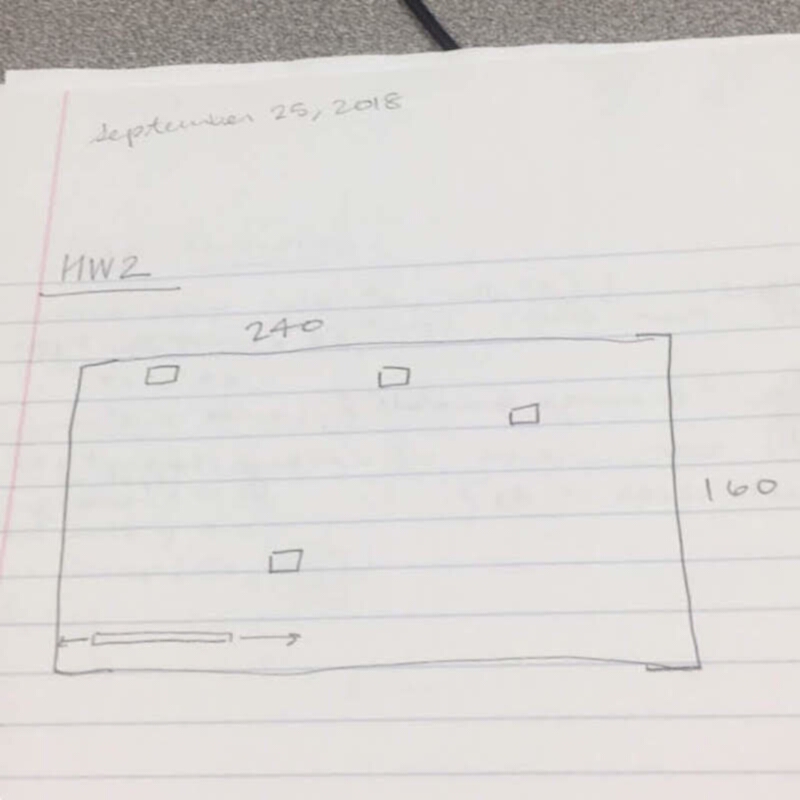 September 25, 2018
HW2
240
160